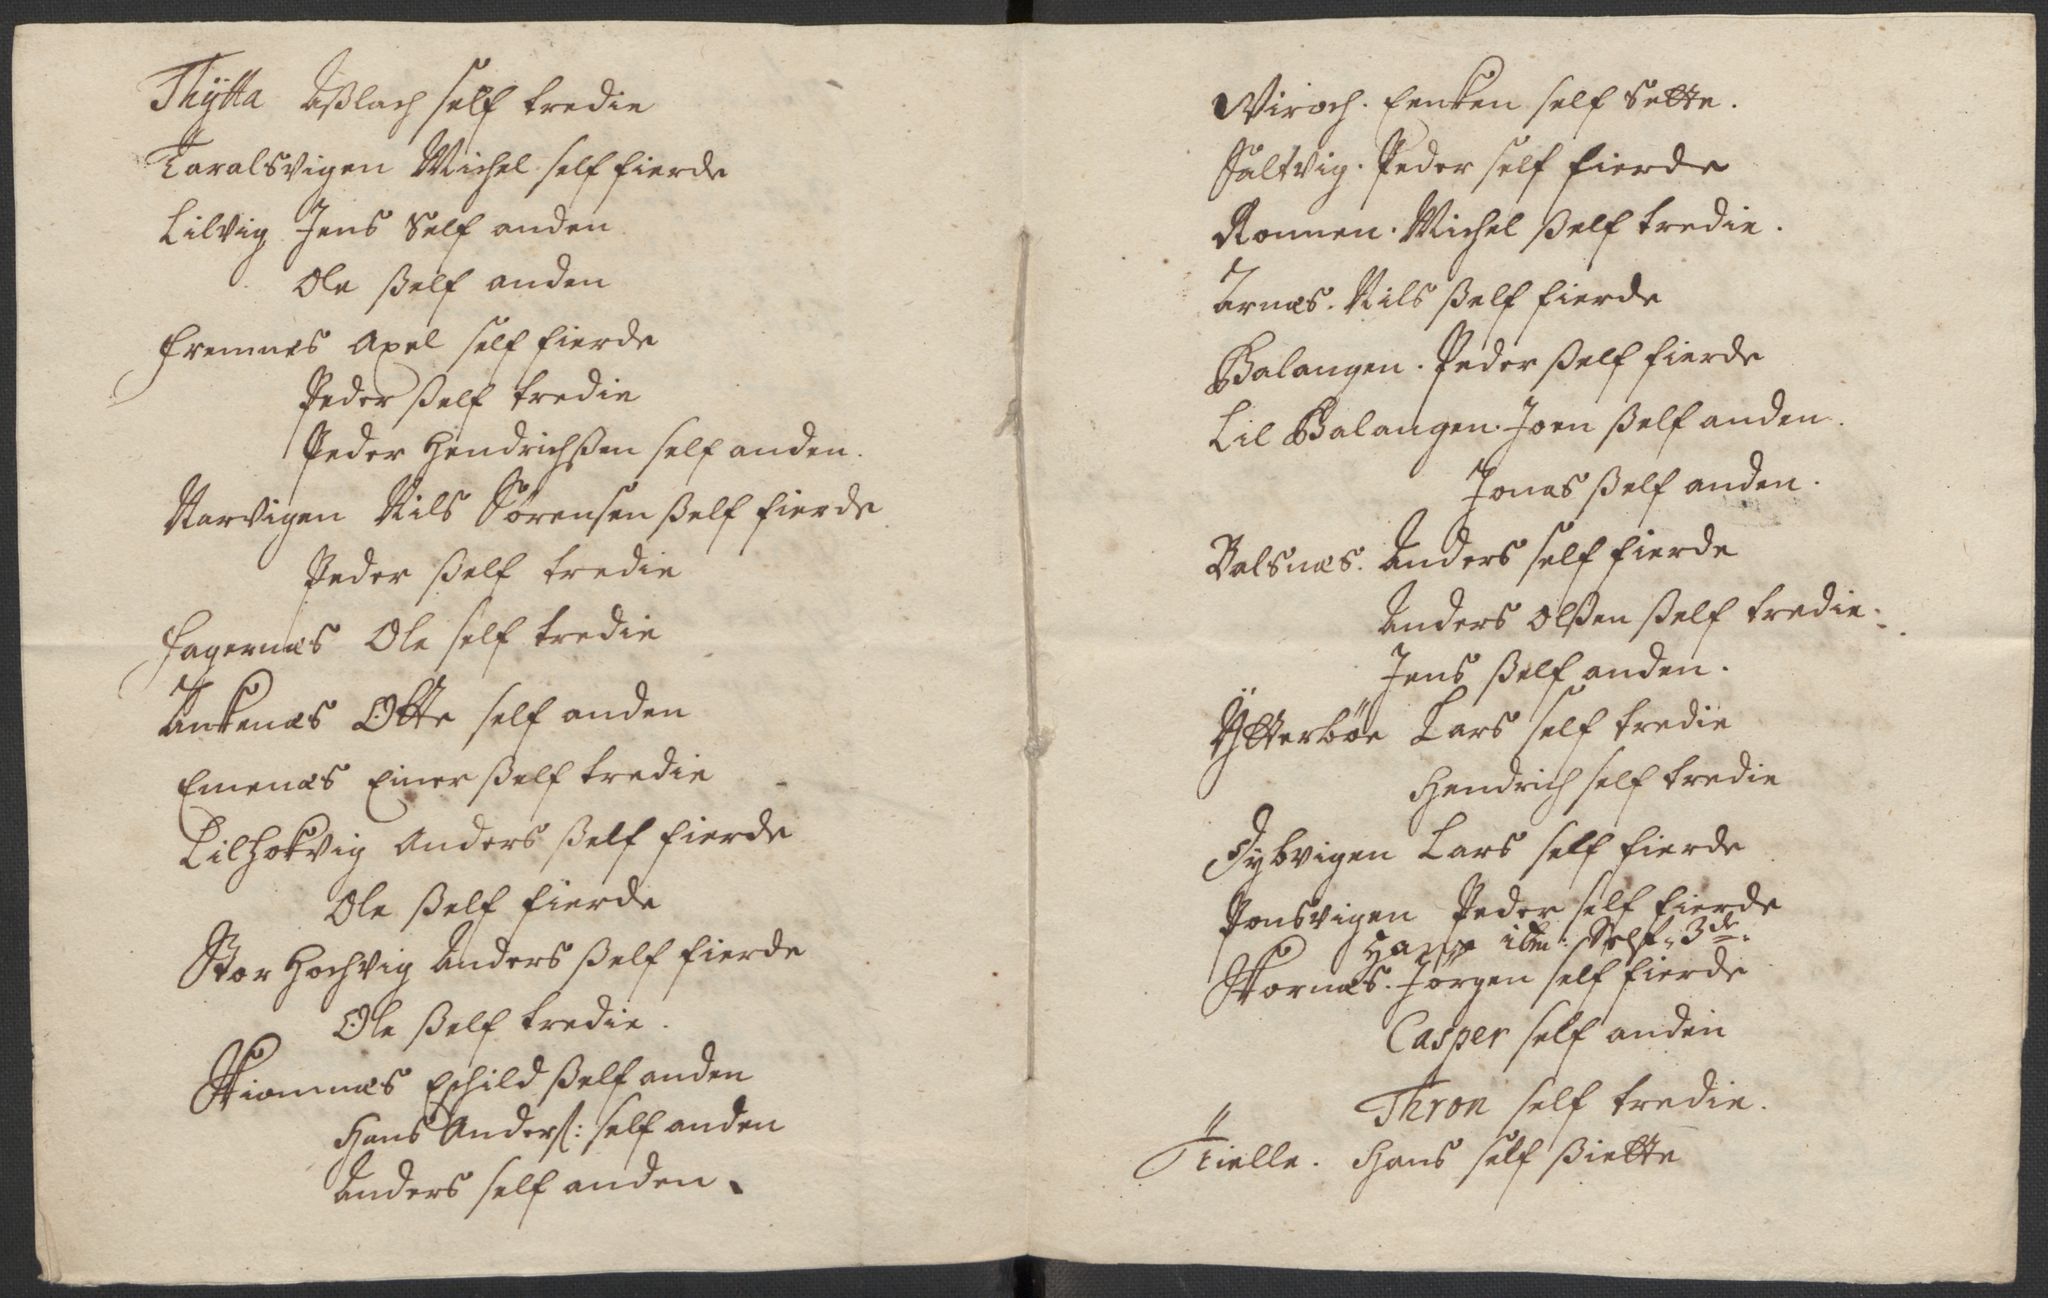 Thÿtta Aßlach self tredie
Taralsvigen Michel self fierde
Lilvig Jens Self anden
Ole ßelf anden
Fremnes Axel self fierde
Peder ßelf tredie
Peder Hendrichßen self anden.
Narvigen Nils Sørensen ßelf fierde
Peder ßelf tredie
Fagernæs Ole self tredie
Ankenæs Otte self anden
Emenæs Einer ßelf tredie
Lilhokvig Anders ßelf fierde
Ole ßelf fierde
Stor Hochvig Anders ßelf fierde
Ole ßelf tredie.
Skiomnæs Eschild ßelf anden
Hans Anderß: self anden
Anders self anden.
Viroch. Enken self Sette.
Saltvig. Peder self fierde
Ronnen. Michel ßelf tredie.
Arnæs. Nils ßelf fierde
Balangen. Peder ßelf fierde
Lil Balangen. Joen ßelf anden.
Jonas ßelf anden.
Balsnæs. Anders self fierde
Anders Olßen ßelf tredie.
Jens ßelf anden.
Ÿtterbøe Lars self tredie
Hendrich self tredie
Dybvigen Lars self fierde
Ponsvigen Peder self fierde
Hans ibm: Self 3de.
Stornæs. Jørgen self fierde
Casper self anden
Thron self tredie.
Kielle. Hans self ßiette